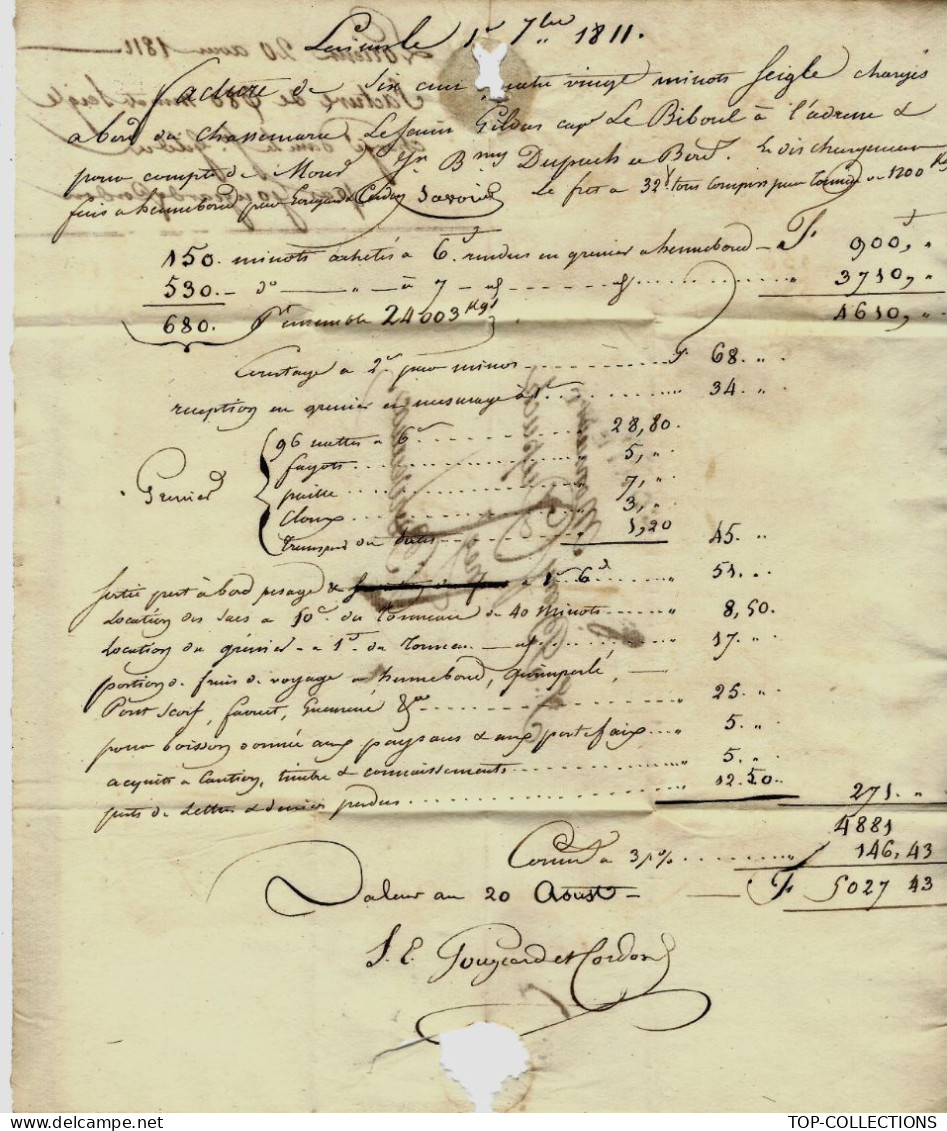 Lorient le 1er 7bre 1811.
Facture de Six cent quatre vingt minots Seigle chargés
a bord du chassemarée Le jeune Gildas cape Le Biboul à l'adresse &
pour compte de Monsr Bmy Dupuch a Bord. Le dis chargement
fais a hennebond par Gougeard & Cordon Savoir Le fret a 32 tous compris par Tonneau de 1200 Kg
150. minots achetés à 6 rendus en grenier a hennebond F 900, "
530. do " à 7 3710, "
680. Pt ensemble 24003 Kgs 4610, "
Courtage a 2 par minot F 68. "
reception en grenier en mesurage à 1 " 34. "
96 nattes a 6 28,80
fagots 5, "
Grenier paille 7, "
cloux 3, "
transport du dites 1,20 45. "
Sortie port à bord pesage & a 1 6d " 51. "
Location des sacs a 10 du Tonneau de 40 minots " 8,50.
Location du grenier a 1 du Tonneau " 17. "
portion de frais de voyage a hennebond, quimperlé,
Pont Scorf, faouet, Guemené &a 25. "
pour boisson donnée aux paysans & aux portefaix 5. "
acquits a Caution, timbre & connaissements 5. "
ports de Lettres & deniers perdus 12.50. 271. "
4881
Comm a 3 p% " 146,43
Valeur au 20 Aoust F 5027 43
J. E. Gougeard et Cordon
TOP-COLLECTIONS